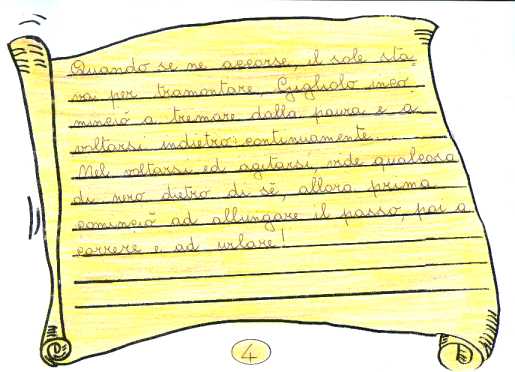 Quando se ne accorse, il sole sta
va per tramontare, Gigliolo inco
minciò a tremare dalla paura e a
voltarsi indietro continuamente.
Nel voltarsi ed agitarsi, vide qualcosa
di nero dietro di sé, allora prima
cominciò ad allungare il passo, poi a
correre e ad urlare!
4